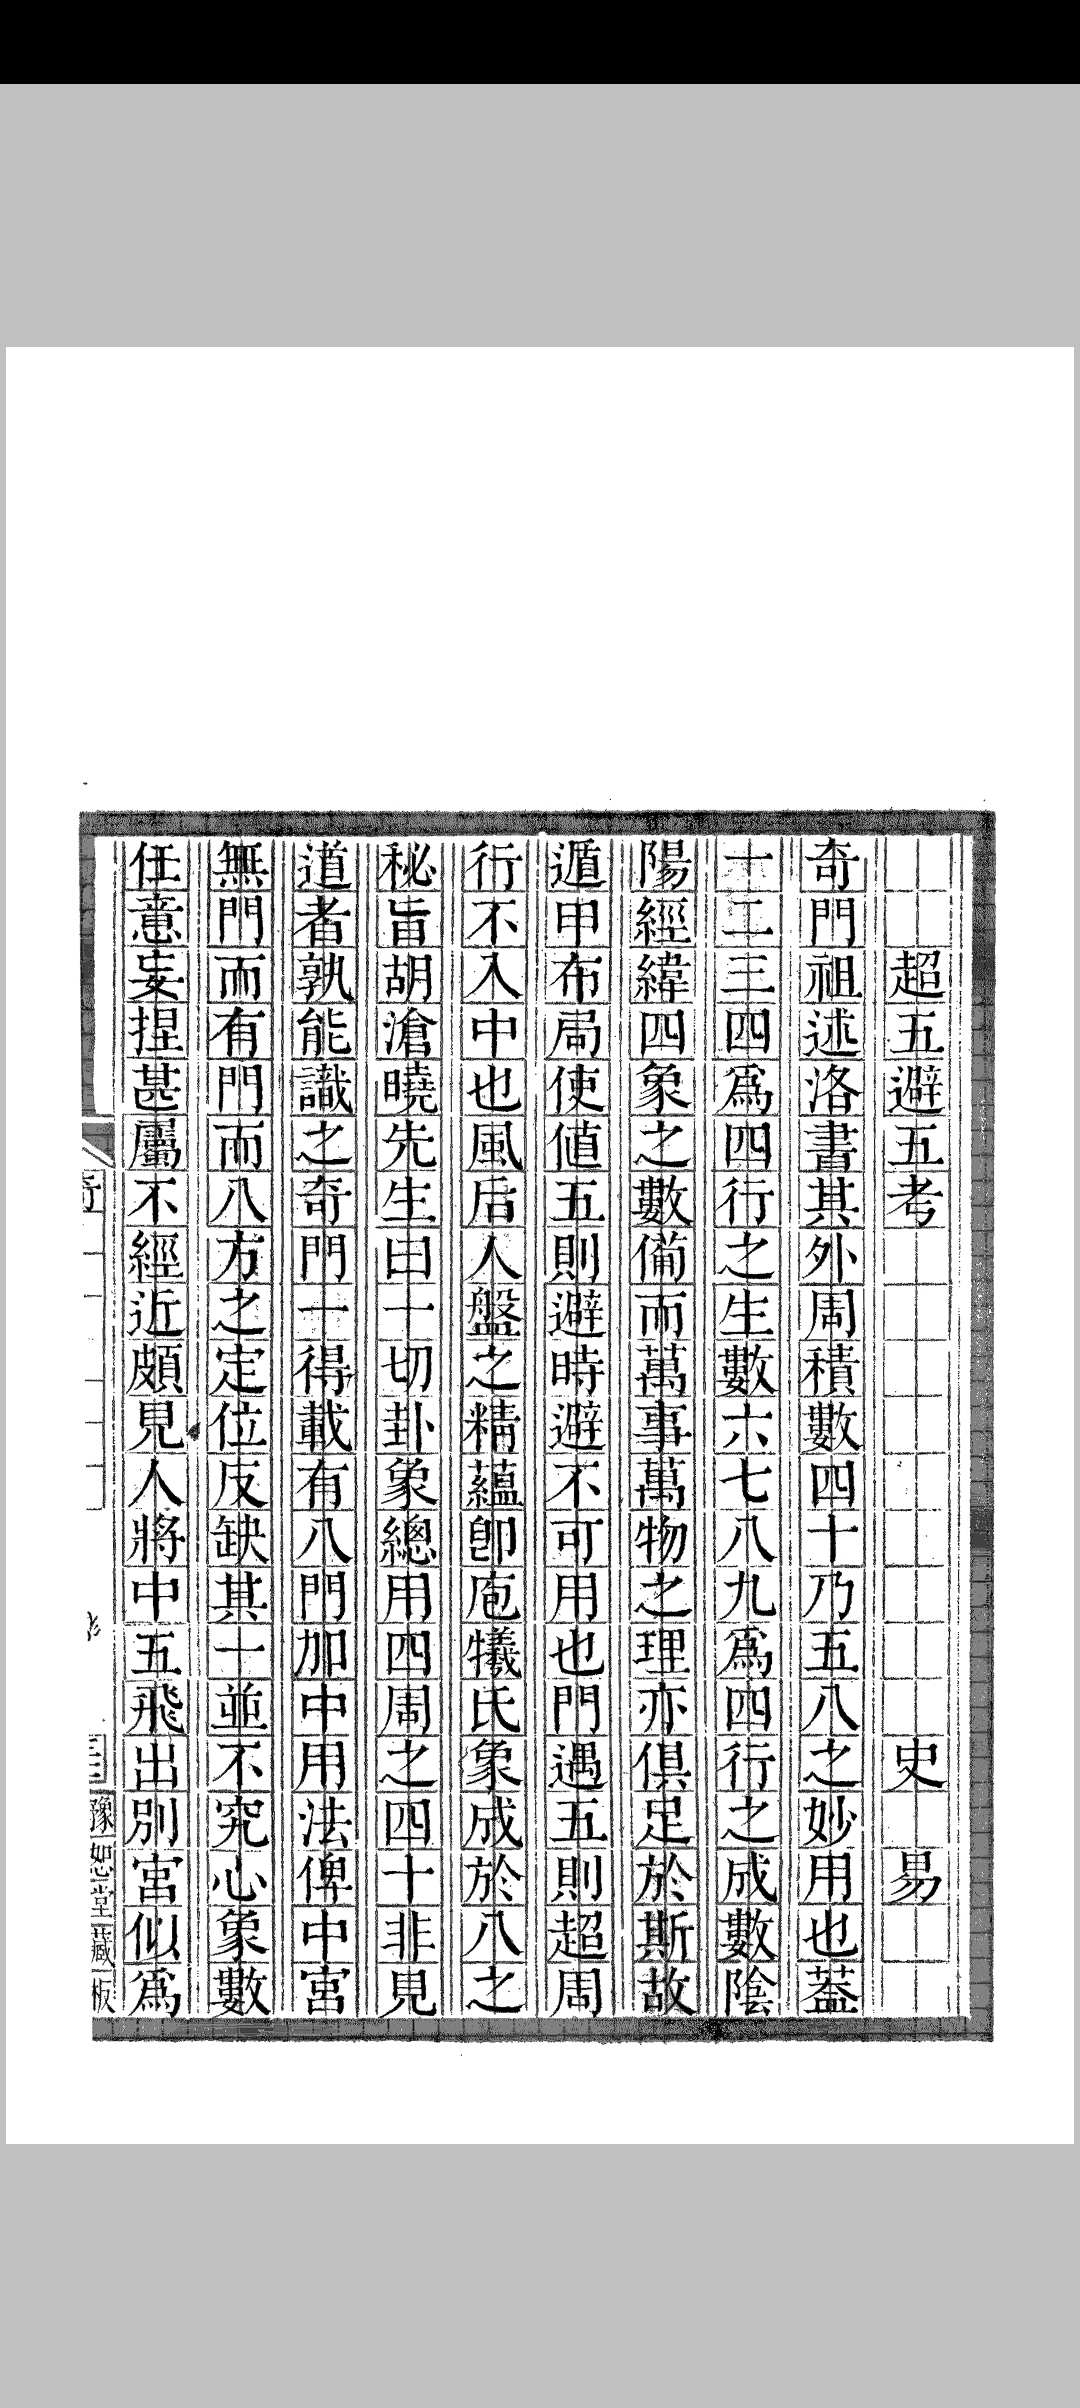 超五避五考　史易
奇門祖述洛書其外周積數四十乃五八之妙用也葢
一二三四爲四行之生數六七八九爲四行之成數陰
陽經緯四象之數備而萬事萬物之理亦俱足於斯故
遁甲布局使値五則避時避不可用也門遇五則超周
行不入中也風后人盤之精蘊卽庖犧氏象成於八之
秘旨胡滄曉先生曰一切卦象總用四周之四十非見
道者孰能識之奇門一得載有八門加中用法俾中宮
無門而有門而八方之定位反缺其一並不究心象數
任意妄捏甚屬不經近頗見人將中五飛出別宮似爲
豫恕堂藏板